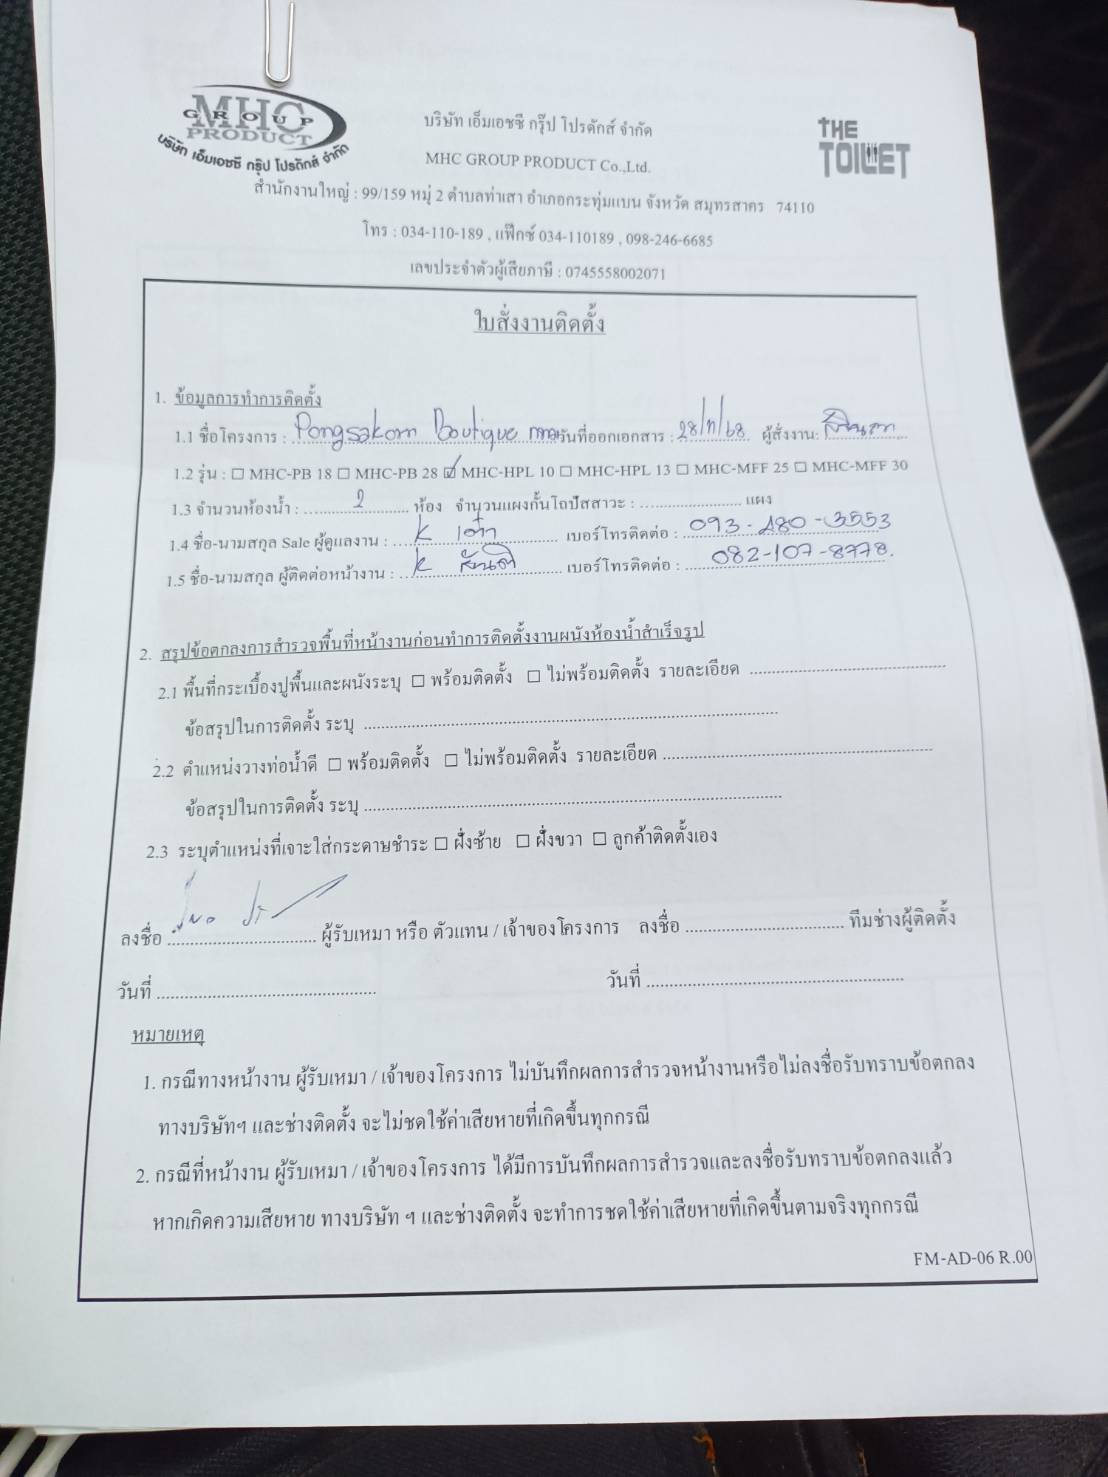 MHC
GROUP
PRODUCT
บริษัท เอ็มเอชซี กรุ๊ป โปรดักส์ จำกัด
THE
TOILET
บริษัท เอ็มเอชซี กรุ๊ป โปรดักส์ จำกัด
MHC GROUP PRODUCT Co.,Ltd.
สำนักงานใหญ่ : 99/159 หมู่ 2 ตำบลท่าเสา อำเภอกระทุ่มแบน จังหวัด สมุทรสาคร 74110
โทร : 034-110-189 , แฟ็กซ์ 034-110189 , 098-246-6685
เลขประจำตัวผู้เสียภาษี : 0745558002071
ใบสั่งงานติดตั้ง
1. ข้อมูลการทำการติดตั้ง
1.1 ชื่อโครงการ : Pongsakorn Boutique วันที่ออกเอกสาร : 28/11/68 ผู้สั่งงาน:
1.2 รุ่น : ☐ MHC-PB 18 ☐ MHC-PB 28 ☑ MHC-HPL 10 ☐ MHC-HPL 13 ☐ MHC-MFF 25 ☐ MHC-MFF 30
1.3 จำนวนห้องน้ำ : 2 ห้อง จำนวนแผงกั้นโถปัสสาวะ : ........................ แผง
1.4 ชื่อ-นามสกุล Sale ผู้ดูแลงาน : k เต๋า เบอร์โทรติดต่อ : 093-480-3553
1.5 ชื่อ-นามสกุล ผู้ติดต่อหน้างาน : k สันติ เบอร์โทรติดต่อ : 082-107-8778.
2. สรุปข้อตกลงการสำรวจพื้นที่หน้างานก่อนทำการติดตั้งงานผนังห้องน้ำสำเร็จรูป
2.1 พื้นที่กระเบื้องปูพื้นและผนังระบุ ☐ พร้อมติดตั้ง ☐ ไม่พร้อมติดตั้ง รายละเอียด ........................
ข้อสรุปในการติดตั้ง ระบุ ........................
2.2 ตำแหน่งวางท่อน้ำดี ☐ พร้อมติดตั้ง ☐ ไม่พร้อมติดตั้ง รายละเอียด ........................
ข้อสรุปในการติดตั้ง ระบุ ........................
2.3 ระบุตำแหน่งที่เจาะใส่กระดาษชำระ ☐ ฝั่งซ้าย ☐ ฝั่งขวา ☐ ลูกค้าติดตั้งเอง
ลงชื่อ ........................ ผู้รับเหมา หรือ ตัวแทน / เจ้าของโครงการ ลงชื่อ ........................ ทีมช่างผู้ติดตั้ง
วันที่ ........................ วันที่ ........................
หมายเหตุ
1. กรณีทางหน้างาน ผู้รับเหมา / เจ้าของโครงการ ไม่บันทึกผลการสำรวจหน้างานหรือไม่ลงชื่อรับทราบข้อตกลง
ทางบริษัทฯ และช่างติดตั้ง จะไม่ชดใช้ค่าเสียหายที่เกิดขึ้นทุกกรณี
2. กรณีที่หน้างาน ผู้รับเหมา / เจ้าของโครงการ ได้มีการบันทึกผลการสำรวจและลงชื่อรับทราบข้อตกลงแล้ว
หากเกิดความเสียหาย ทางบริษัท ฯ และช่างติดตั้ง จะทำการชดใช้ค่าเสียหายที่เกิดขึ้นตามจริงทุกกรณี
FM-AD-06 R.00